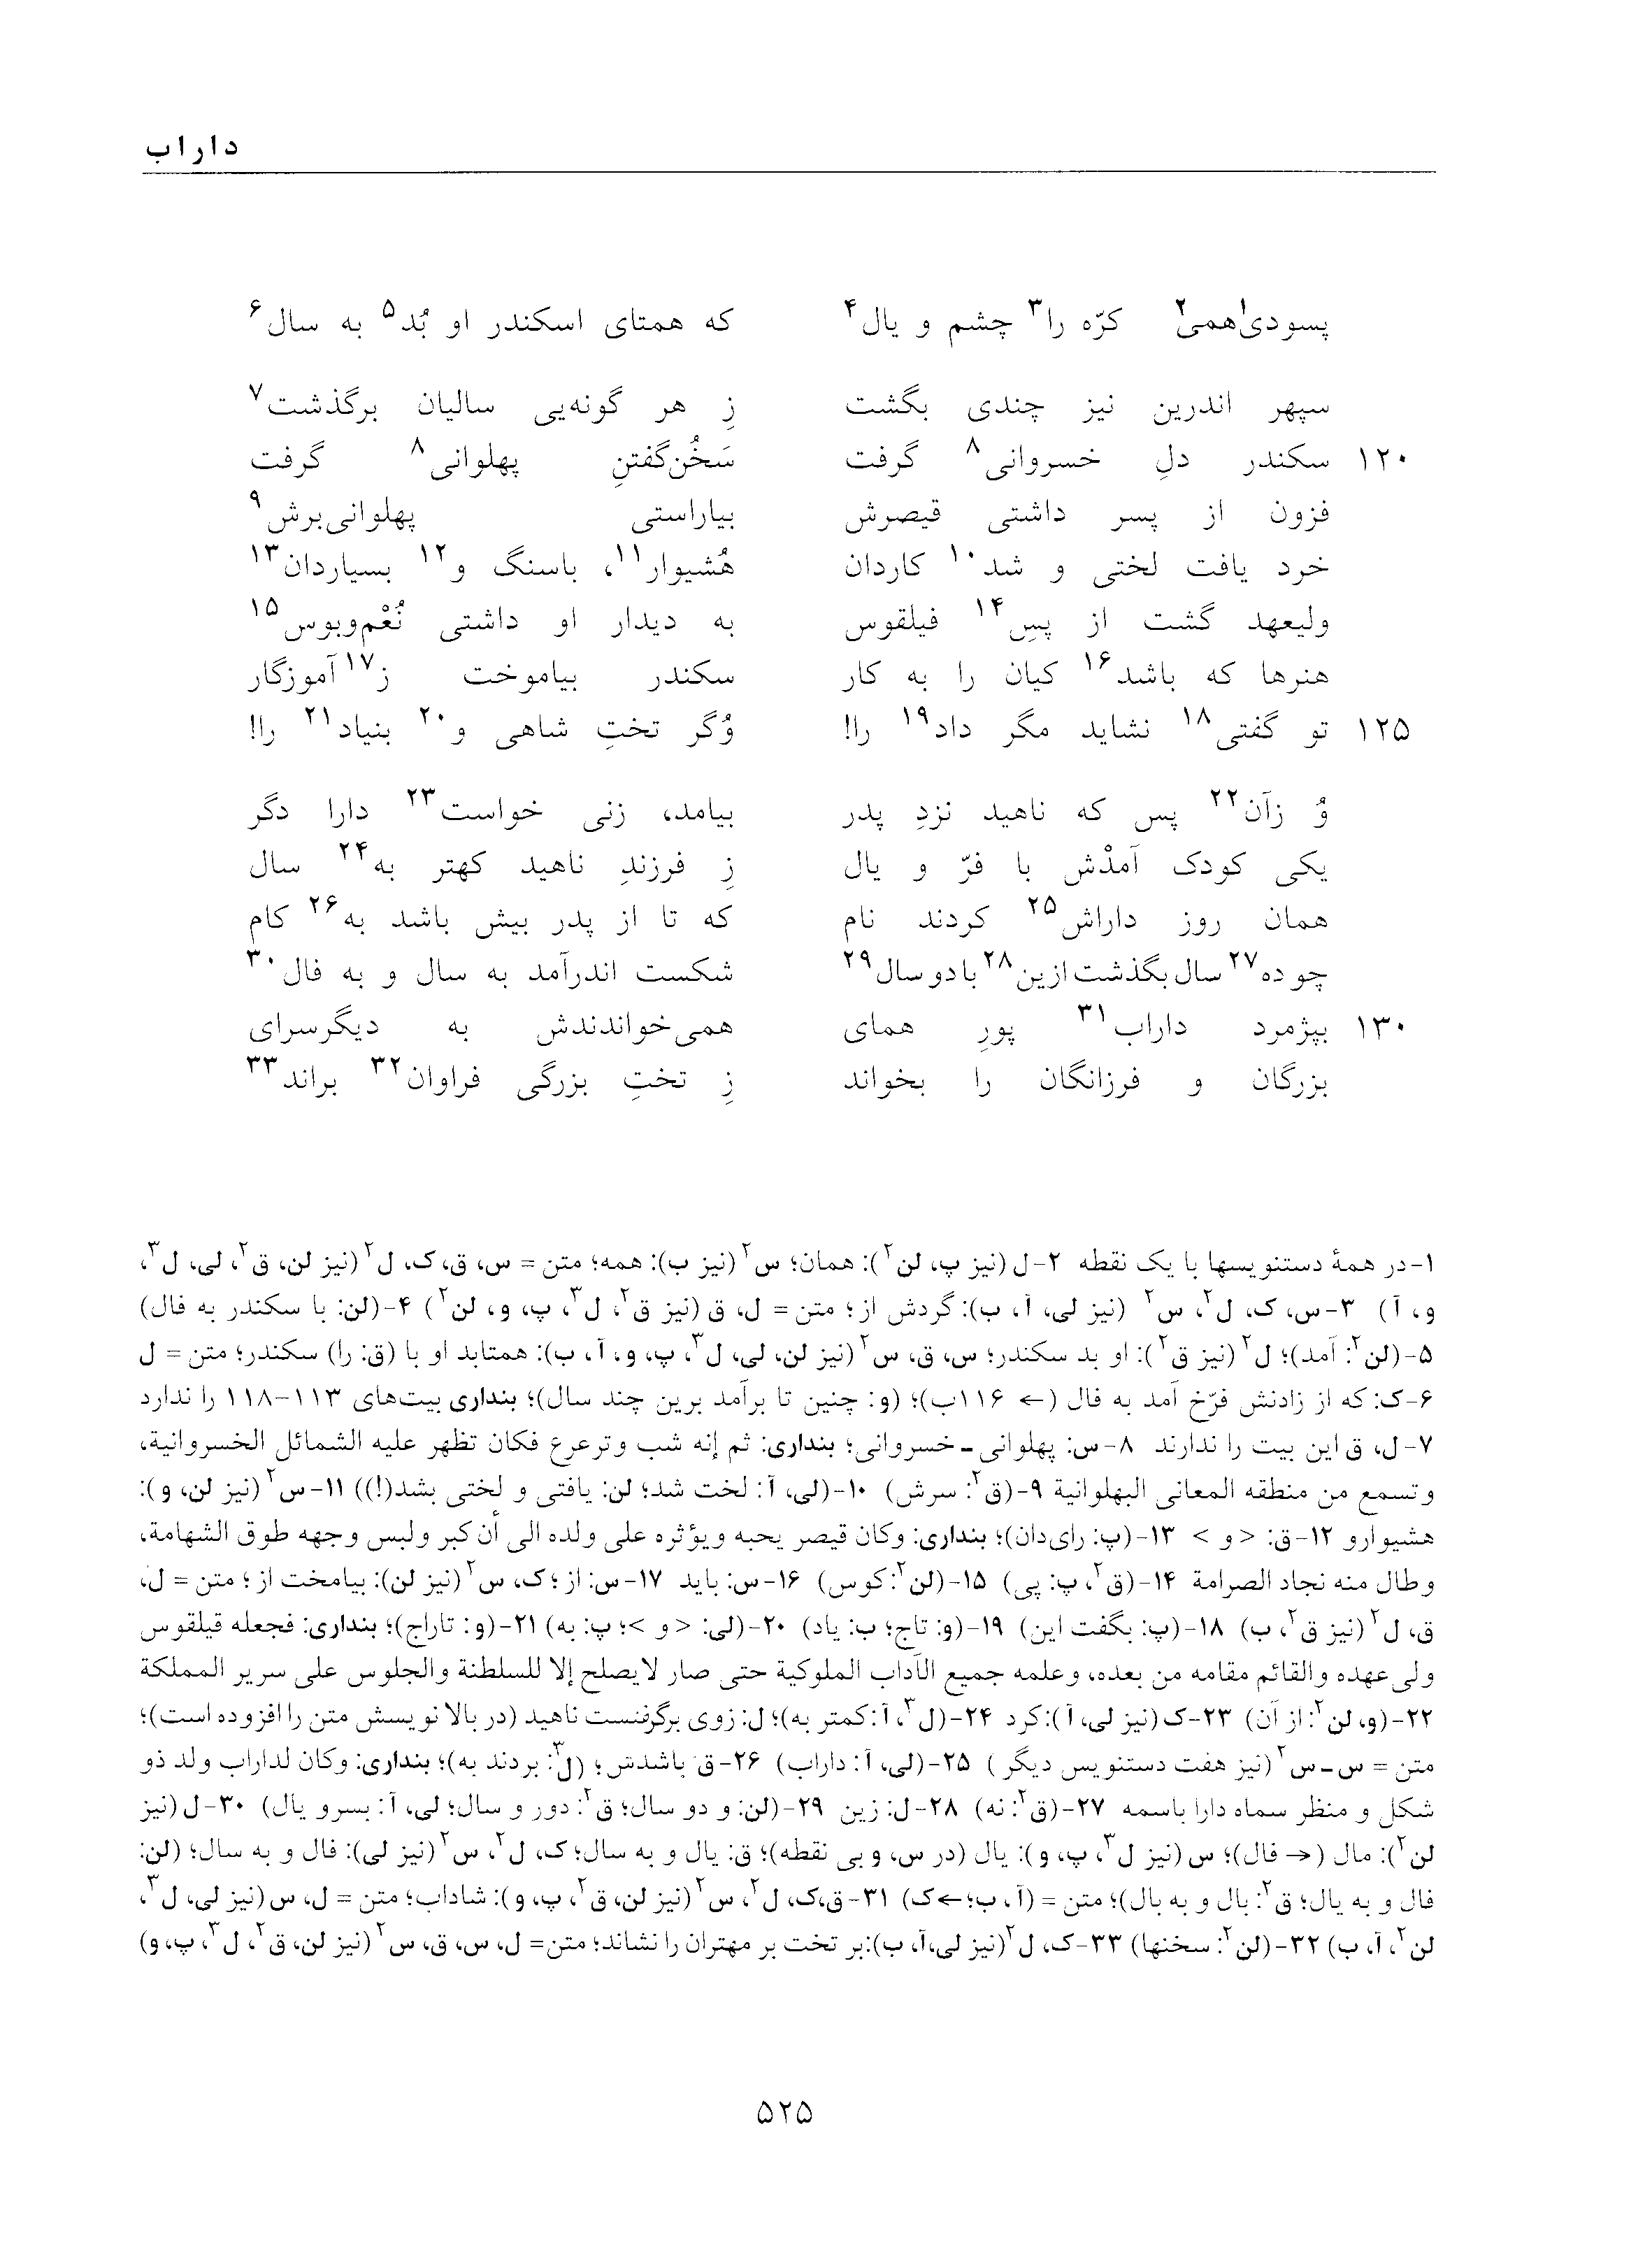 داراب
پسودی۱ همی۲ کرّه را۳ چشم و یال۴ که همتای اسکندر او بُد۵ به سال۶
سپهر اندرین نیز چندی بگشت زِ هر گونه‌یی سالیان برگذشت۷
۱۲۰ سکندر دلِ خسروانی۸ گرفت سَخُن‌گفتنِ پهلوانی۸ گرفت
فزون از پسر داشتی قیصرش بیاراستی پهلوانی‌برش۹
خرد یافت لختی و شد۱۰ کاردان هُشیوار۱۱، باسنگ و۱۲ بسیاردان۱۳
ولیعهد گشت از پسِ۱۴ فیلقوس به دیدار او داشتی نُعْم‌وبوس۱۵
هنرها که باشد۱۶ کیان را به کار سکندر بیاموخت ز۱۷ آموزگار
۱۲۵ تو گفتی۱۸ نشاید مگر داد۱۹ را! وُگر تختِ شاهی و۲۰ بنیاد۲۱ را!
وُ زآن۲۲ پس که ناهید نزدِ پدر بیامد، زنی خواست۲۳ دارا دگر
یکی کودک آمدْش با فرّ و یال زِ فرزندِ ناهید کهتر به۲۴ سال
همان روز داراش۲۵ کردند نام که تا از پدر بیش باشد به۲۶ کام
چو ده۲۷ سال بگذشت ازین۲۸ با دو سال۲۹ شکست اندرآمد به سال و به فال۳۰
۱۳۰ بپژمرد داراب۳۱ پورِ همای همی‌خواندندش به دیگرسرای
بزرگان و فرزانگان را بخواند زِ تختِ بزرگی فراوان۳۲ براند۳۳
۱-در همهٔ دستنویسها با یک نقطه ۲-ل (نیز پ، لن۲): همان؛ س۲ (نیز ب): همه؛ متن = س، ق، ک، ل۲ (نیز لن، ق۲، لی، ل۳،
و، آ) ۳-س، ک، ل۲، س۲ (نیز لی، آ، ب): گردش از؛ متن = ل، ق (نیز ق۲، ل۳، پ، و، لن۲) ۴-(لن: با سکندر به فال)
۵-(لن۲: آمد)؛ ل۲ (نیز ق۲): او بد سکندر؛ س، ق، س۲ (نیز لن، لی، ل۳، پ، و، آ، ب): همتابد او با (ق: را) سکندر؛ متن = ل
۶-ک: که از زادنش فرّخ آمد به فال (← ۱۱۶ب)؛ (و: چنین تا برآمد برین چند سال)؛ بنداری بیت‌های ۱۱۳-۱۱۸ را ندارد
۷-ل، ق این بیت را ندارند ۸-س: پهلوانی-خسروانی؛ بنداری: ثم إنه شب وترعرع فکان تظهر علیه الشمائل الخسروانیة،
وتسمع من منطقه المعانی البهلوانیة ۹-(ق۲: سرش) ۱۰-(لی، آ: لخت شد؛ لن: یافتی و لختی بشد(!)) ۱۱-س۲ (نیز لن، و):
هشیوارو ۱۲-ق: < و > ۱۳-(پ: رای‌دان)؛ بنداری: وکان قیصر یحبه ویؤثره علی ولده الی أن کبر ولبس وجهه طوق الشهامة،
وطال منه نجاد الصرامة ۱۴-(ق۲، پ: پی) ۱۵-(لن۲: کوس) ۱۶-س: باید ۱۷-س: از؛ ک، س۲ (نیز لن): بیامخت از؛ متن = ل،
ق، ل۲ (نیز ق۲، ب) ۱۸-(پ: بگفت این) ۱۹-(و: تاج؛ ب: یاد) ۲۰-(لی: < و >؛ پ: به) ۲۱-(و: تاراج)؛ بنداری: فجعله فیلقوس
ولی‌عهده والقائم مقامه من بعده، وعلمه جمیع الآداب الملوکیة حتی صار لایصلح إلا للسلطنة والجلوس علی سریر المملکة
۲۲-(و، لن۲: از آن) ۲۳-ک (نیز لی، آ): کرد ۲۴-(ل۳، آ: کمتر به)؛ ل: زوی برگرفتست ناهید (در بالا نویسش متن را افزوده است)؛
متن = س-س۲ (نیز هفت دستنویس دیگر) ۲۵-(لی، آ: داراب) ۲۶-ق باشدش؛ (ل۳: بردند به)؛ بنداری: وکان لداراب ولد ذو
شکل و منظر سماه دارا باسمه ۲۷-(ق۲: نه) ۲۸-ل: زین ۲۹-(لن: و دو سال؛ ق۲: دور و سال؛ لی، آ: بسرو یال) ۳۰-ل (نیز
لن۲): مال (→ فال)؛ س (نیز ل۳، پ، و): یال (در س، و بی نقطه)؛ ق: یال و به سال؛ ک، ل۲، س۲ (نیز لی): فال و به سال؛ (لن:
فال و به یال؛ ق۲: بال و به بال)؛ متن = (آ، ب؛ ←ک) ۳۱-ق،ک، ل۲، س۲ (نیز لن، ق۲، پ، و): شاداب؛ متن = ل، س (نیز لی، ل۳،
لن۲، آ، ب) ۳۲-(لن۲: سخنها) ۳۳-ک، ل۲ (نیز لی،آ، ب):بر تخت بر مهتران را نشاند؛ متن= ل، س، ق، س۲ (نیز لن، ق۲، ل۳، پ، و)
۵۲۵